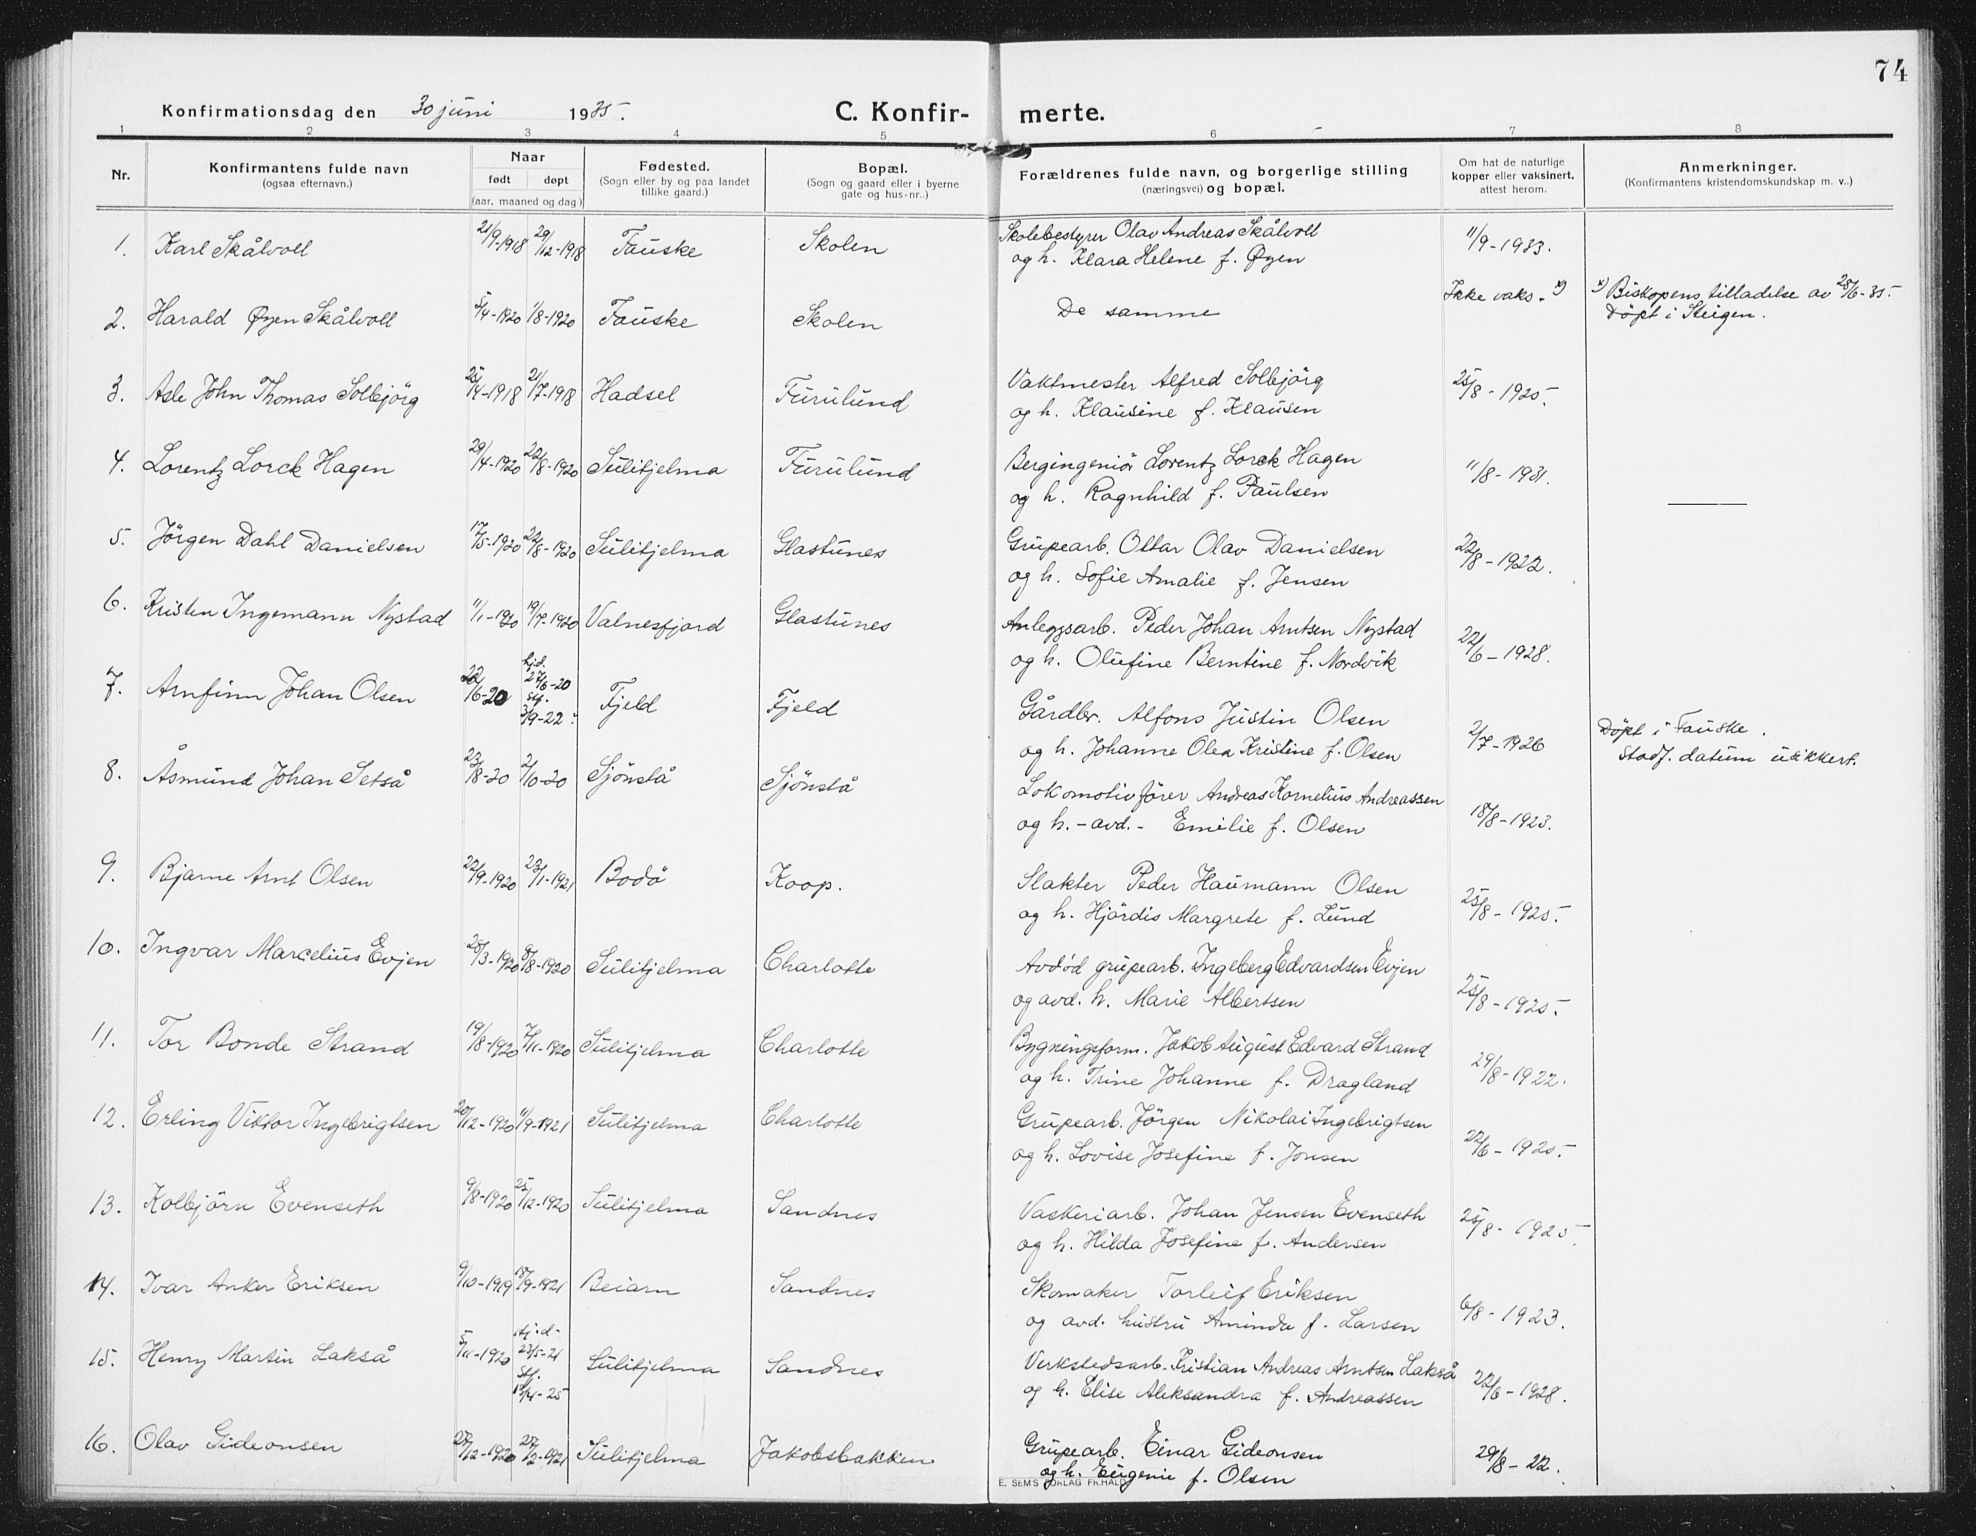 74
Konfirmationsdag den 30 juni 1935.
C. Konfir- merte.
1 2 3 4 5 6 7 8
Nr.
Konfirmantens fulde navn
(ogsaa efternavn.)
Naar
født døpt
(aar, maaned og dag)
Fødested.
(Sogn eller by og paa landet
tillike gaard.)
Bopæl.
(Sogn og gaard eller i byerne
gate og hus-nr..)
Forældrenes fulde navn, og borgerlige stilling
(næringsvei) og bopæl.
Om hat de naturlige
kopper eller vaksinert,
attest herom.
Anmerkninger.
(Konfirmantens kristendomskundskap m. v..)
1. Karl Skålvoll 21/9-1918 29/12-1918 Fauske Skolen Skolebestyrer Olav Andreas Skålvoll 11/9-1933.
og h. Klara Helene f. Øyen
2. Harald Øyen Skålvoll 5/4-1920 1/8-1920 Fauske Skolen De samme Ikke vaks. x) x) Biskopens tilladelse av 28/6-35.
Døpt i Steigen.
3. Asle John Thomas Solbjörg 25/4-1918 21/7-1918 Hadsel Furulund Vaktmester Alfred Solbjörg 25/8-1925.
og h. Klausine f. Klausen
4. Lorentz Lorck Hagen 29/4-1920 22/8-1920 Sulitjelma Furulund Bergingeniör Lorentz Lorck Hagen 11/8-1931.
og h. Ragnhild f. Paulsen
5. Jörgen Dahl Danielsen 17/5-1920 22/8-1920 Sulitjelma Glastunes Grupearb. Ottar Olav Danielsen 22/8-1922.
og h. Sofie Amalie f. Jensen
6. Kristen Ingemann Nystad 11/1-1920 19/7-1920 Valnesfjord Glastunes Anleggsarb. Peder Johan Arntsen Nystad 22/6-1928.
og h. Olufine Berntine f. Nordvik
7. Arnfinn Johan Olsen 22/6-20 hjd. 27/6-20 stf. 3/9-22. Fjeld Fjeld Gårdbr. Alfons Justin Olsen 2/7-1926 Döpt i Fauske.
og h. Johanne Olea Kristine f. Olsen Stadf. datum usikkert.
8. Åsmund Johan Setså 23/8-20 2/10-20 Sjönstå Sjönstå Lokomotivförer Andreas Kornelius Andreassen 18/8-1923.
og h. - avd. - Emilie f. Olsen
9. Bjarne Arnt Olsen 22/9-1920 23/1-1921 Bodö Koop. Slakter Peder Haumann Olsen 25/8-1925.
og h. Hjördis Margrete f. Lund
10. Ingvar Marcelius Evjen 28/3-1920 8/8-1920 Sulitjelma Charlotte Avdød grupearb. Ingeberg Edvardsen Evjen 25/8-1925.
og avd. h. Marie Albertsen
11. Tor Bonde Strand 19/8-1920 7/11-1920 Sulitjelma Charlotte Bygningsform. Jakob August Edvard Strand 29/8-1922.
og h. Trine Johanne f. Dragland
12. Erling Viktor Ingebrigtsen 20/12-1920 11/9-1921 Sulitjelma Charlotte Grupearb. Jörgen Nikolai Ingebrigtsen 22/6-1925.
og h. Lovise Josefine f. Jonsen
13. Kolbjörn Evenseth 9/8-1920 25/12-1920 Sulitjelma Sandnes Vaskeriarb. Johan Jensen Evenseth 25/8-1925.
og h. Hilda Josefine f. Andersen
14. Ivar Anker Eriksen 9/10-1919 18/9-1921 Beiarn Sandnes Skomaker Torleif Eriksen 6/8-1923.
og avd. hustru Aminda f. Larsen
15. Henry Martin Lakså 5/11-1920 hj.d. 23/5-21 stf. 13/4-25 Sulitjelma Sandnes Verkstedsarb. Kristian Andreas Arntsen Lakså 22/6-1928.
og h. Elise Aleksandra f. Andreassen
16. Olav Gideonsen 27/12-1920 27/2-1921 Sulitjelma Jakobsbakken Grupearb. Einar Gideonsen 29/8-22.
og h. Eugenie f. Olsen
E. SEMS FORLAG FR.HALD